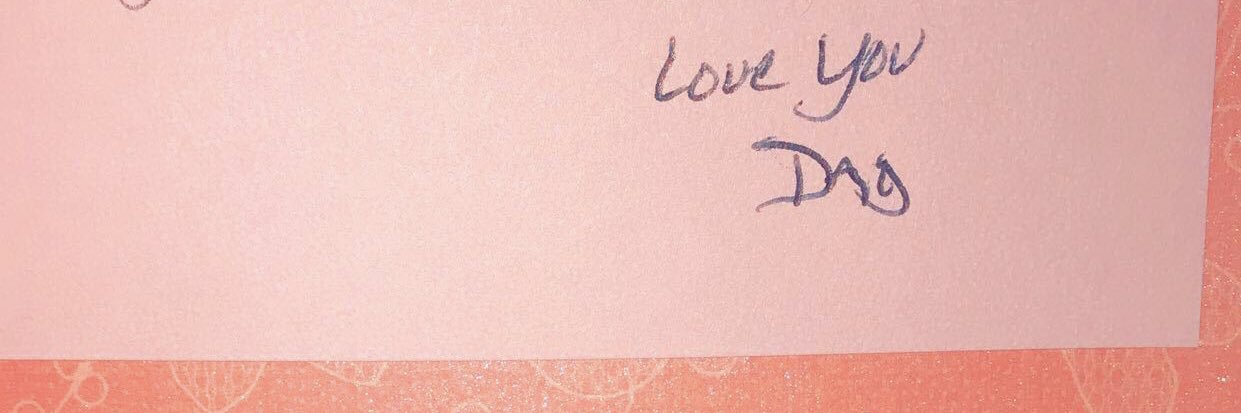 Love You
Dad